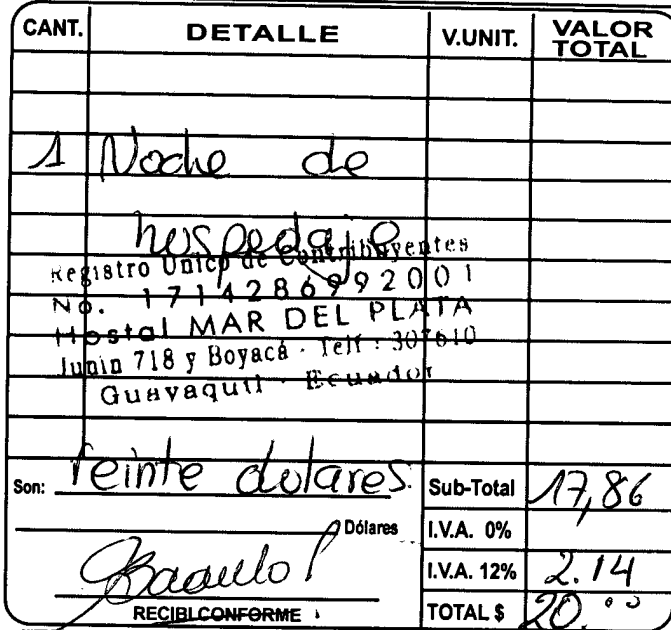 CANT. DETALLE V.UNIT. VALOR TOTAL
1 Noche de
hospedaje
Registro Unico de Contribuyentes
No. 1714286992001
Hostal MAR DEL PLATA
Junin 718 y Boyacá - Telf : 307610
Guayaquil - Ecuador
Son: Veinte dolares Sub-Total 17,86
Dólares I.V.A. 0%
I.V.A. 12% 2.14
RECIBI CONFORME TOTAL $ 20.00